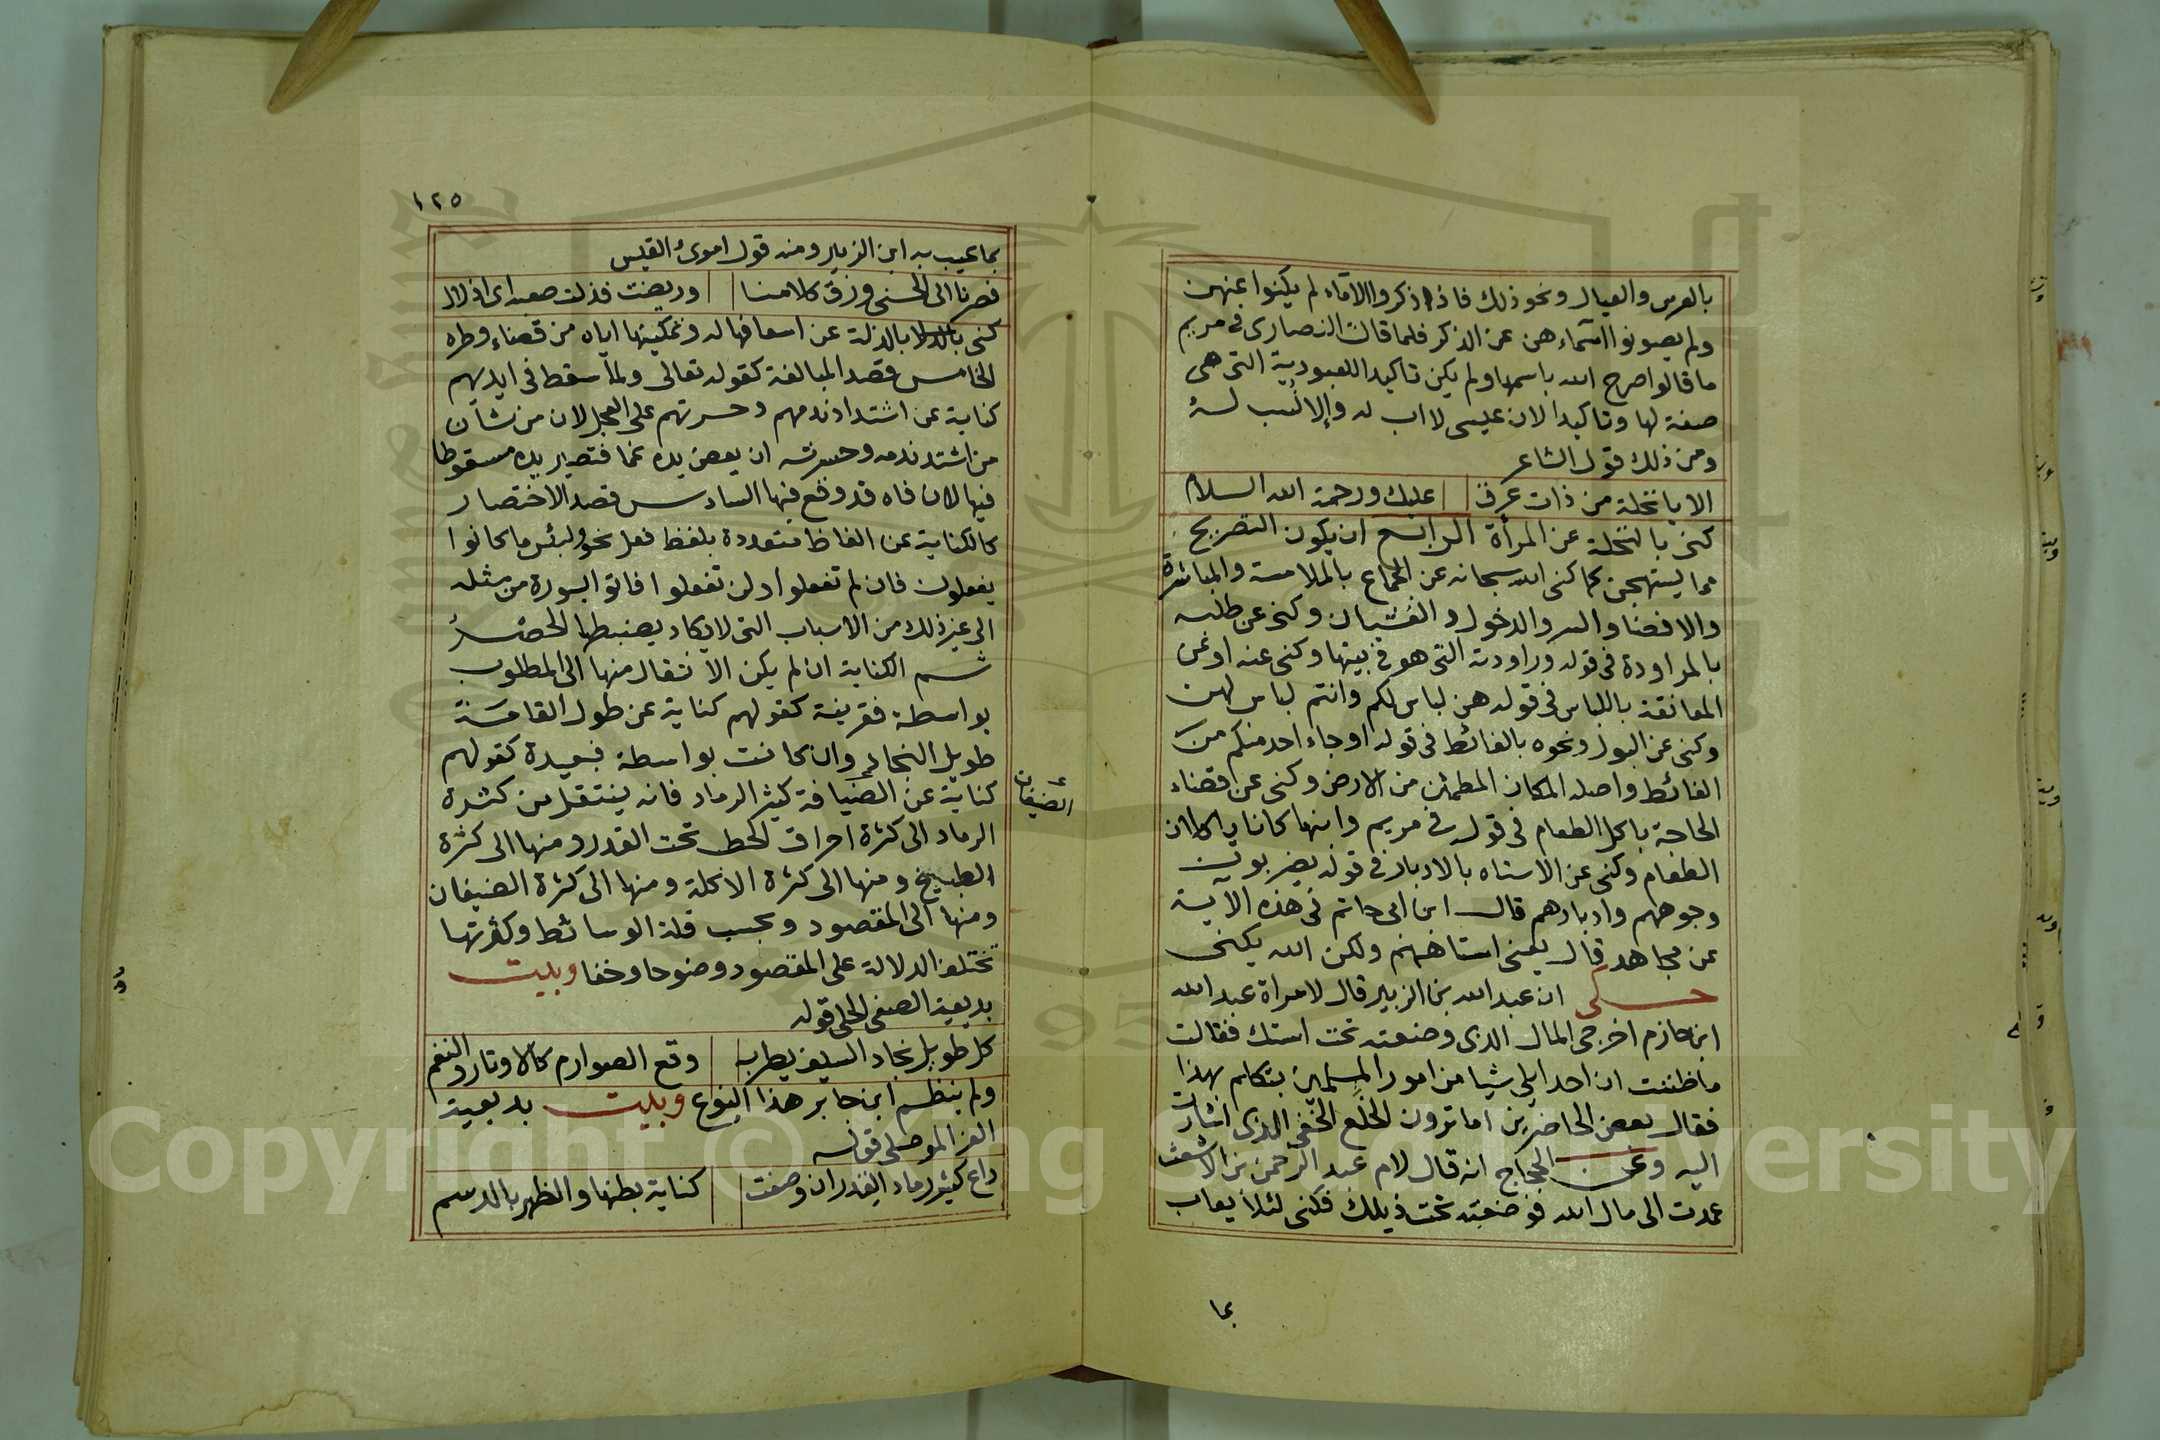 بالعرس والعيال ونحو ذلك فاذا ذكروا الاماء لم يكنوا عنهن
ولم يصونوا اسماءهن عن الذكر فلما قالت النصارى في مريم
ما قالوا صرح الله باسمها ولم يكن تاكيدا للعبودية التي هي
صفة لها وتاكيدا لان عيسى لا اب له والا لنسب له
ومن ذلك قول الشاعر
الا يا نخلة من ذات عرق عليك ورحمة الله السلام
كنى بالنخلة عن المرأة الرابع ان يكون التصريح
مما يستهجن كما كنى الله سبحانه عن الجماع بالملامسة والمباشرة
والافضا والسر والدخول والغشيان وكنى عن طلبه
بالمراودة في قوله وراودته التي هو في بيتها وكنى عنه او عن
المعانقة باللباس في قوله هن لباس لكم وانتم لباس لهن
وكنى عن البول ونحوه بالغائط في قوله او جاء احد منكم من
الغائط واصله المكان المطمئن من الارض وكنى عن قضاء
الحاجة باكل الطعام في قوله في مريم وابنها كانا ياكلان
الطعام وكنى عن الاستاه بالادبار في قوله يضربون
وجوههم وادبارهم قال ابن ابى حاتم في هذه الآية
عن مجاهد قال يعني استاههم ولكن الله يكنى
حكى ان عبد الله بن الزبير قال لامراة عبد الله
ابن حازم اخرجى المال الذى وضعته تحت استك فقالت
ما ظننت ان احدا يلى شيا من امور المسلمين يتكلم بهذا
فقال بعض الحاضرين اما ترون الخلع الخفى الذى اشارت
اليه وعن الحجاج انه قال لام عبد الرحمن بن الاشعث
عمدت الى مال الله فوضعته تحت ذيلك فكنى لئلا يعاب
بما
١٢٥
بما عيب به ابن الزبير ومنه قول امرئ القيس
فصرنا الى الحسنى ورق كلامنا ورضت فذلت صعبة اى اذلال
كنى بالذلة عن اسعافها له وتمكينها اياه من قضاء وطره
الخامس قصد المبالغة كقوله تعالى ولما سقط في ايديهم
كناية عن اشتداد ندمهم وحسرتهم على العجل لان من شان
من اشتد ندمه وحسرته ان يعض يده غما فتصير يده مسقوطا
فيها لان فاه قد وقع فيها السادس قصد الاختصار
كالكناية عن الفاظ متعددة بلفظ فعل نحو ولبئس ما كانوا
يفعلون فان لم تفعلوا ولن تفعلوا فاتوا بسورة من مثله
الى غير ذلك من الاسباب التي لا يكاد يضبطها الحصر
ثم الكناية ان لم يكن الانتقال منها الى المطلوب
بواسطة فقريبة كقولهم كناية عن طول القامة
طويل النجاد وان كانت بواسطة فبعيدة كقولهم
كناية عن الضيافة كثير الرماد فانه ينتقل من كثرة
المضيفان
الرماد الى كثرة احراق الحطب تحت القدر ومنها الى كثرة
الطبيخ ومنها الى كثرة الاكلة ومنها الى كثرة الضيفان
ومنها الى المقصود وبحسب قلة الوسائط وكثرتها
تختلف الدلالة على المقصود وضوحا وخفا وبيت
بديعية الصفى الحلى قوله
كل طويل نجاد السيف يطربه وقع الصوارم كالاوتار والنغم
ولم ينظم ابن جابر هذا النوع وبيت بديعية
العز الموصلى قوله
داع كثير رماد القدر ان وصفت كناية بطنها والظهر بالدسم
Copyright © King Saud University